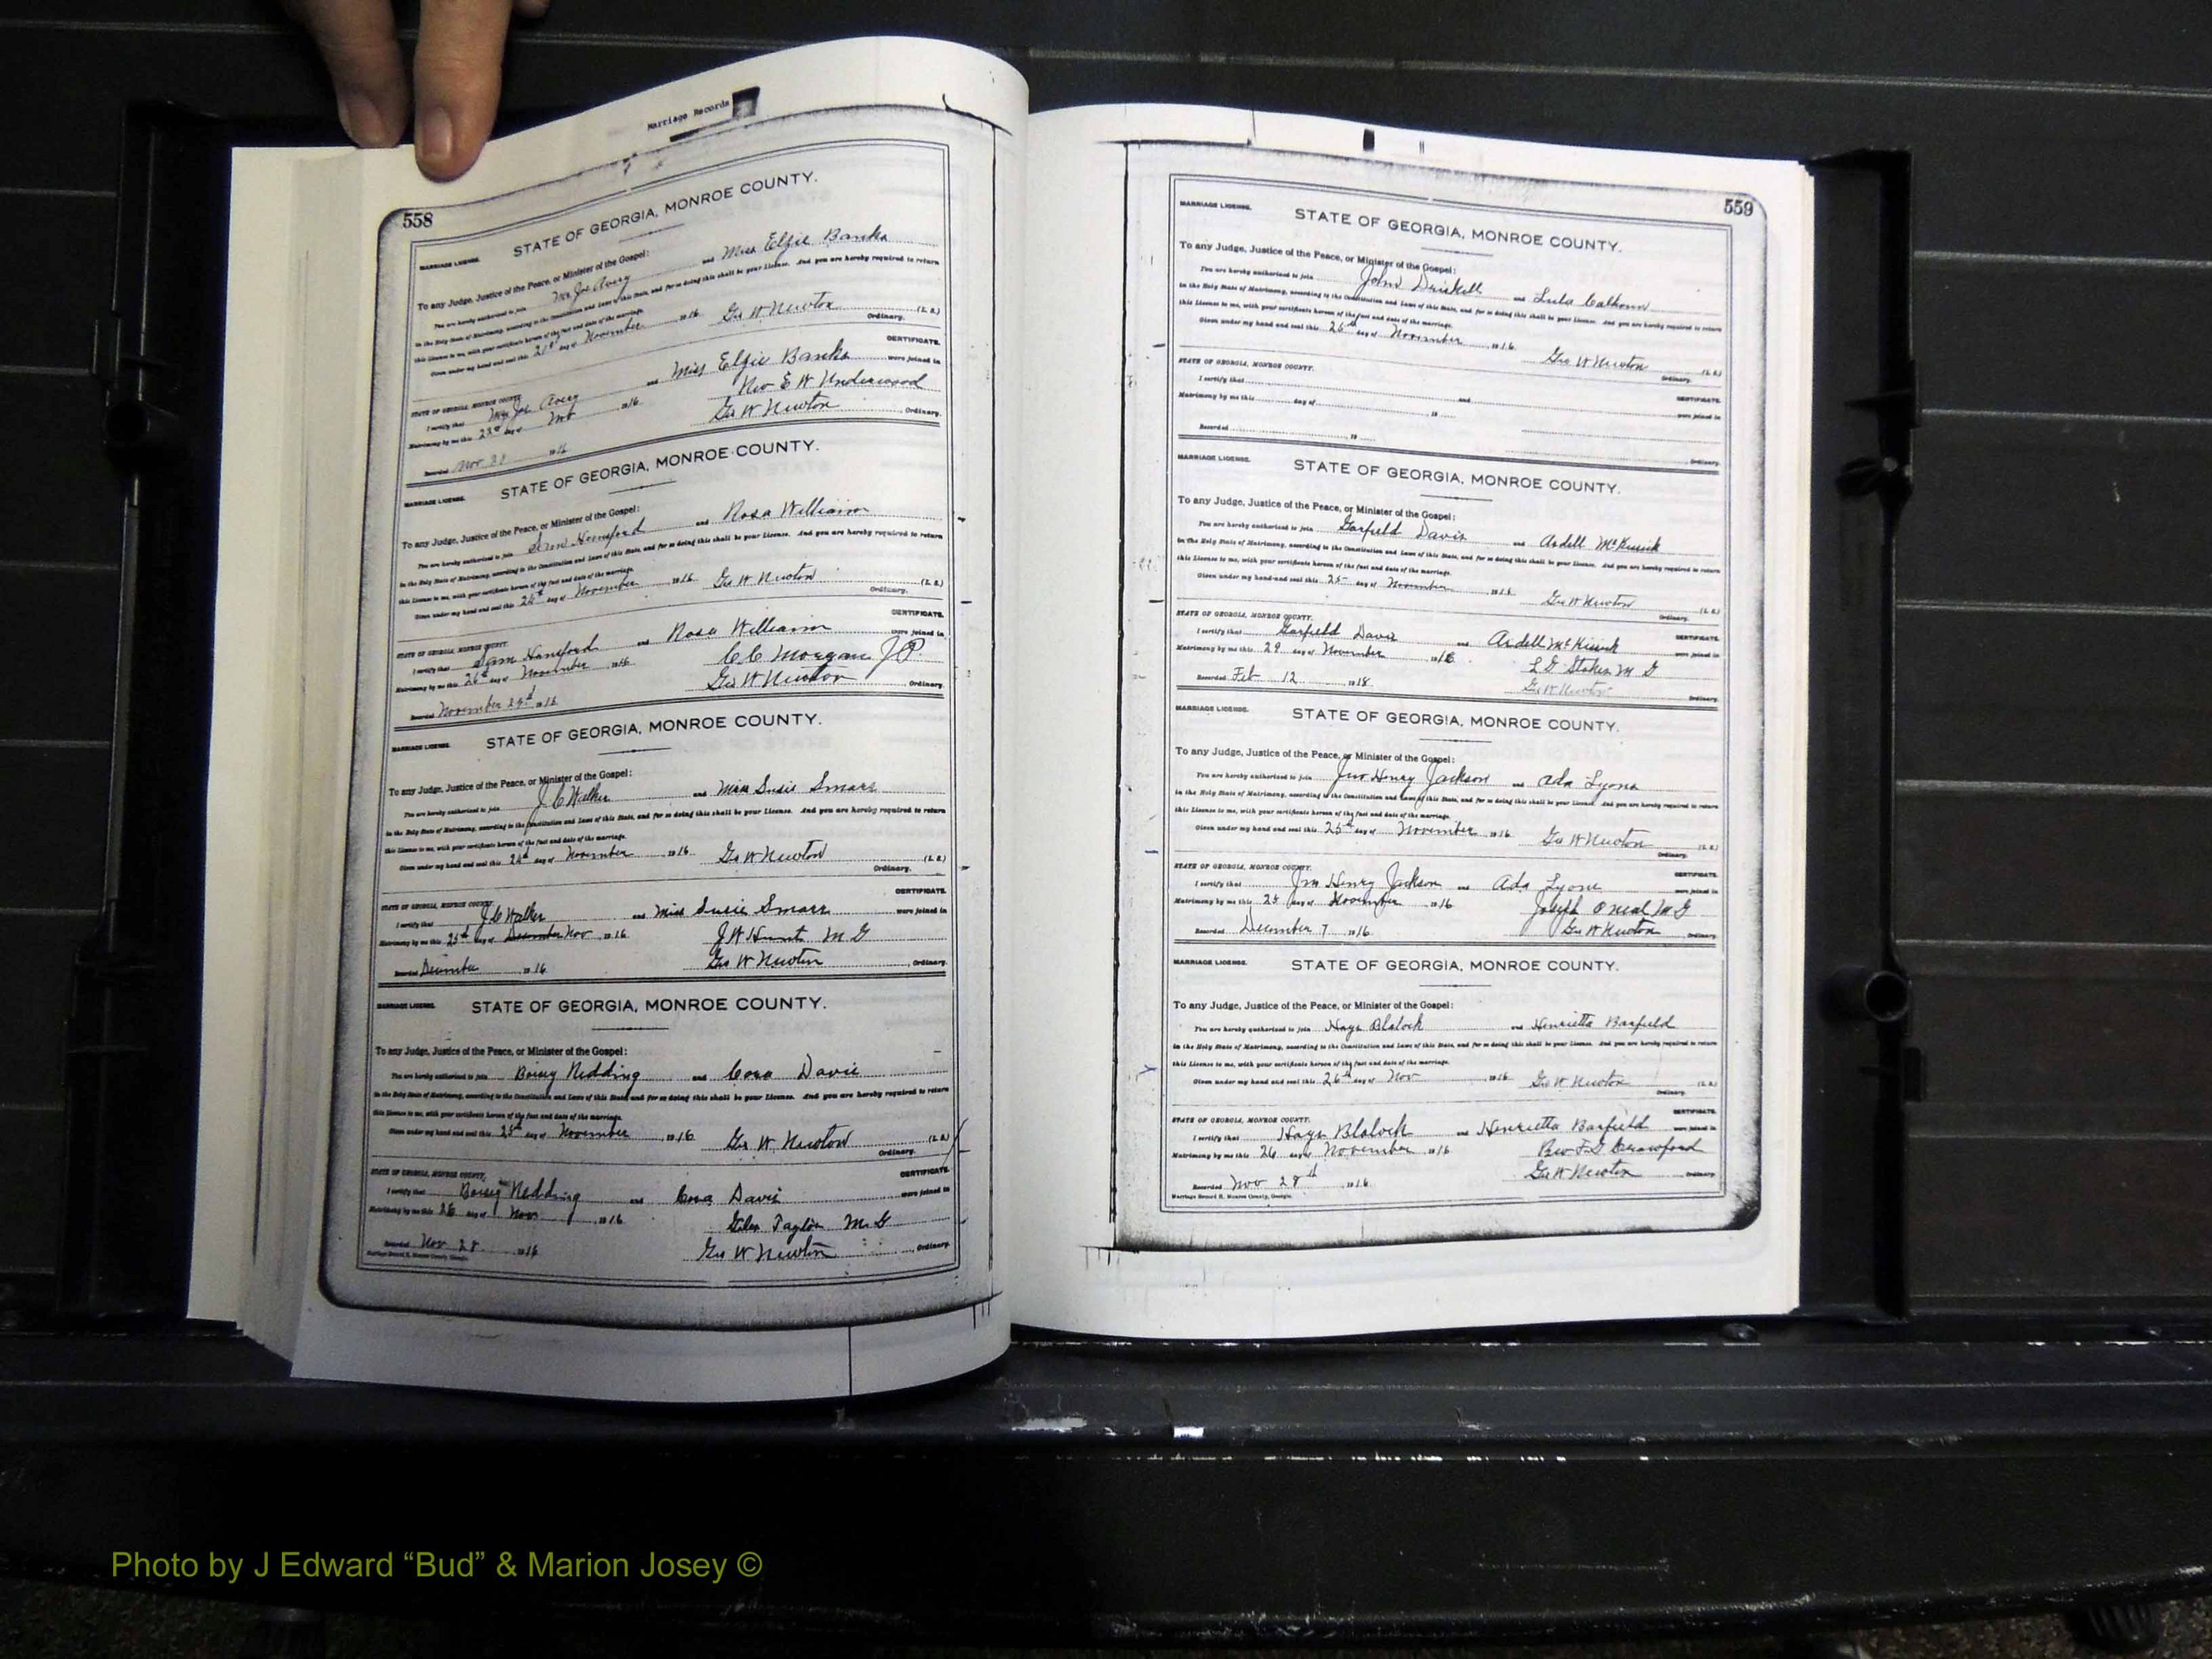 Marriage Records
558
STATE OF GEORGIA, MONROE COUNTY.
MARRIAGE LICENSE.
To any Judge, Justice of the Peace, or Minister of the Gospel:
You are hereby authorized to join Mr Joe Avery and Miss Elzie Banks
in the Holy State of Matrimony, according to the Constitution and Laws of this State, and for so doing this shall be your License. And you are hereby required to return
this License to me, with your certificate hereon of the fact and date of the marriage.
Given under my hand and seal this 21st day of November 1916 Geo W Newton (L. S.)
Ordinary.
CERTIFICATE.
STATE OF GEORGIA, MONROE COUNTY.
I certify that Mr Joe Avery and Miss Elzie Banks were joined in
Matrimony by me this 23rd day of Nov 1916 Rev E W Underwood
Recorded Nov 1916 Geo W Newton Ordinary.
MARRIAGE LICENSE. STATE OF GEORGIA, MONROE COUNTY.
To any Judge, Justice of the Peace, or Minister of the Gospel:
You are hereby authorized to join Sam Hansford and Rosa William
in the Holy State of Matrimony, according to the Constitution and Laws of this State, and for so doing this shall be your License. And you are hereby required to return
this License to me, with your certificate hereon of the fact and date of the marriage.
Given under my hand and seal this 24th day of November 1916 Geo W Newton (L. S.)
Ordinary.
CERTIFICATE.
STATE OF GEORGIA, MONROE COUNTY.
I certify that Sam Hansford and Rosa William were joined in
Matrimony by me this 26th day of November 1916 C C Morgan J P
Recorded November 1916 Geo W Newton Ordinary.
MARRIAGE LICENSE. STATE OF GEORGIA, MONROE COUNTY.
To any Judge, Justice of the Peace, or Minister of the Gospel:
You are hereby authorized to join J C Walker and Miss Susie Smarr
in the Holy State of Matrimony, according to the Constitution and Laws of this State, and for so doing this shall be your License. And you are hereby required to return
this License to me, with your certificate hereon of the fact and date of the marriage.
Given under my hand and seal this 24th day of November 1916 Geo W Newton (L. S.)
Ordinary.
CERTIFICATE.
STATE OF GEORGIA, MONROE COUNTY.
I certify that J C Walker and Miss Susie Smarr were joined in
Matrimony by me this 25th day of December Nov 1916 J W Hunt M G
Recorded December 1916 Geo W Newton Ordinary.
MARRIAGE LICENSE. STATE OF GEORGIA, MONROE COUNTY.
To any Judge, Justice of the Peace, or Minister of the Gospel:
You are hereby authorized to join Boisey Redding and Cora Davis
in the Holy State of Matrimony, according to the Constitution and Laws of this State, and for so doing this shall be your License. And you are hereby required to return
this License to me, with your certificate hereon of the fact and date of the marriage.
Given under my hand and seal this 25th day of November 1916 Geo W Newton (L. S.)
Ordinary.
CERTIFICATE.
STATE OF GEORGIA, MONROE COUNTY.
I certify that Boisey Redding and Cora Davis were joined in
Matrimony by me this 26 day of Nov 1916 Giles Taylor M. G
Recorded Nov 28 1916 Geo W Newton Ordinary.
Marriage Record H, Monroe County, Georgia.
559
MARRIAGE LICENSE. STATE OF GEORGIA, MONROE COUNTY.
To any Judge, Justice of the Peace, or Minister of the Gospel:
You are hereby authorized to join John Driskell and Lula Calhoun
in the Holy State of Matrimony, according to the Constitution and Laws of this State, and for so doing this shall be your License. And you are hereby required to return
this License to me, with your certificate hereon of the fact and date of the marriage.
Given under my hand and seal this 25th day of November 1916 Geo W Newton (L. S.)
Ordinary.
STATE OF GEORGIA, MONROE COUNTY. CERTIFICATE.
I certify that and were joined in
Matrimony by me this day of 19
Recorded 19 Ordinary.
MARRIAGE LICENSE. STATE OF GEORGIA, MONROE COUNTY.
To any Judge, Justice of the Peace, or Minister of the Gospel:
You are hereby authorized to join Garfield Davis and Ardell McKissick
in the Holy State of Matrimony, according to the Constitution and Laws of this State, and for so doing this shall be your License. And you are hereby required to return
this License to me, with your certificate hereon of the fact and date of the marriage.
Given under my hand and seal this 25 day of November 1916 Geo W Newton (L. S.)
Ordinary.
STATE OF GEORGIA, MONROE COUNTY. CERTIFICATE.
I certify that Garfield Davis and Ardell McKissick were joined in
Matrimony by me this 29 day of November 1916 L D Stokes M G
Recorded Feb 12 1918 Geo W Newton Ordinary.
MARRIAGE LICENSE. STATE OF GEORGIA, MONROE COUNTY.
To any Judge, Justice of the Peace, or Minister of the Gospel:
You are hereby authorized to join Jno Henry Jackson and Ada Lyons
in the Holy State of Matrimony, according to the Constitution and Laws of this State, and for so doing this shall be your License. And you are hereby required to return
this License to me, with your certificate hereon of the fact and date of the marriage.
Given under my hand and seal this 25th day of November 1916 Geo W Newton (L. S.)
Ordinary.
STATE OF GEORGIA, MONROE COUNTY. CERTIFICATE.
I certify that Jno Henry Jackson and Ada Lyons were joined in
Matrimony by me this 25 day of November 1916 Joseph Oneal M G
Recorded December 7 1916 Geo W Newton Ordinary.
MARRIAGE LICENSE. STATE OF GEORGIA, MONROE COUNTY.
To any Judge, Justice of the Peace, or Minister of the Gospel:
You are hereby authorized to join Hays Blalock and Henrietta Barfield
in the Holy State of Matrimony, according to the Constitution and Laws of this State, and for so doing this shall be your License. And you are hereby required to return
this License to me, with your certificate hereon of the fact and date of the marriage.
Given under my hand and seal this 26th day of Nov 1916 Geo W Newton (L. S.)
Ordinary.
CERTIFICATE.
STATE OF GEORGIA, MONROE COUNTY.
I certify that Hays Blalock and Henrietta Barfield were joined in
Matrimony by me this 26 day of November 1916 Rev F. G Crawford
Recorded Nov 28th 1916 Geo W Newton Ordinary.
Marriage Record H, Monroe County, Georgia.
Photo by J Edward “Bud” & Marion Josey ©